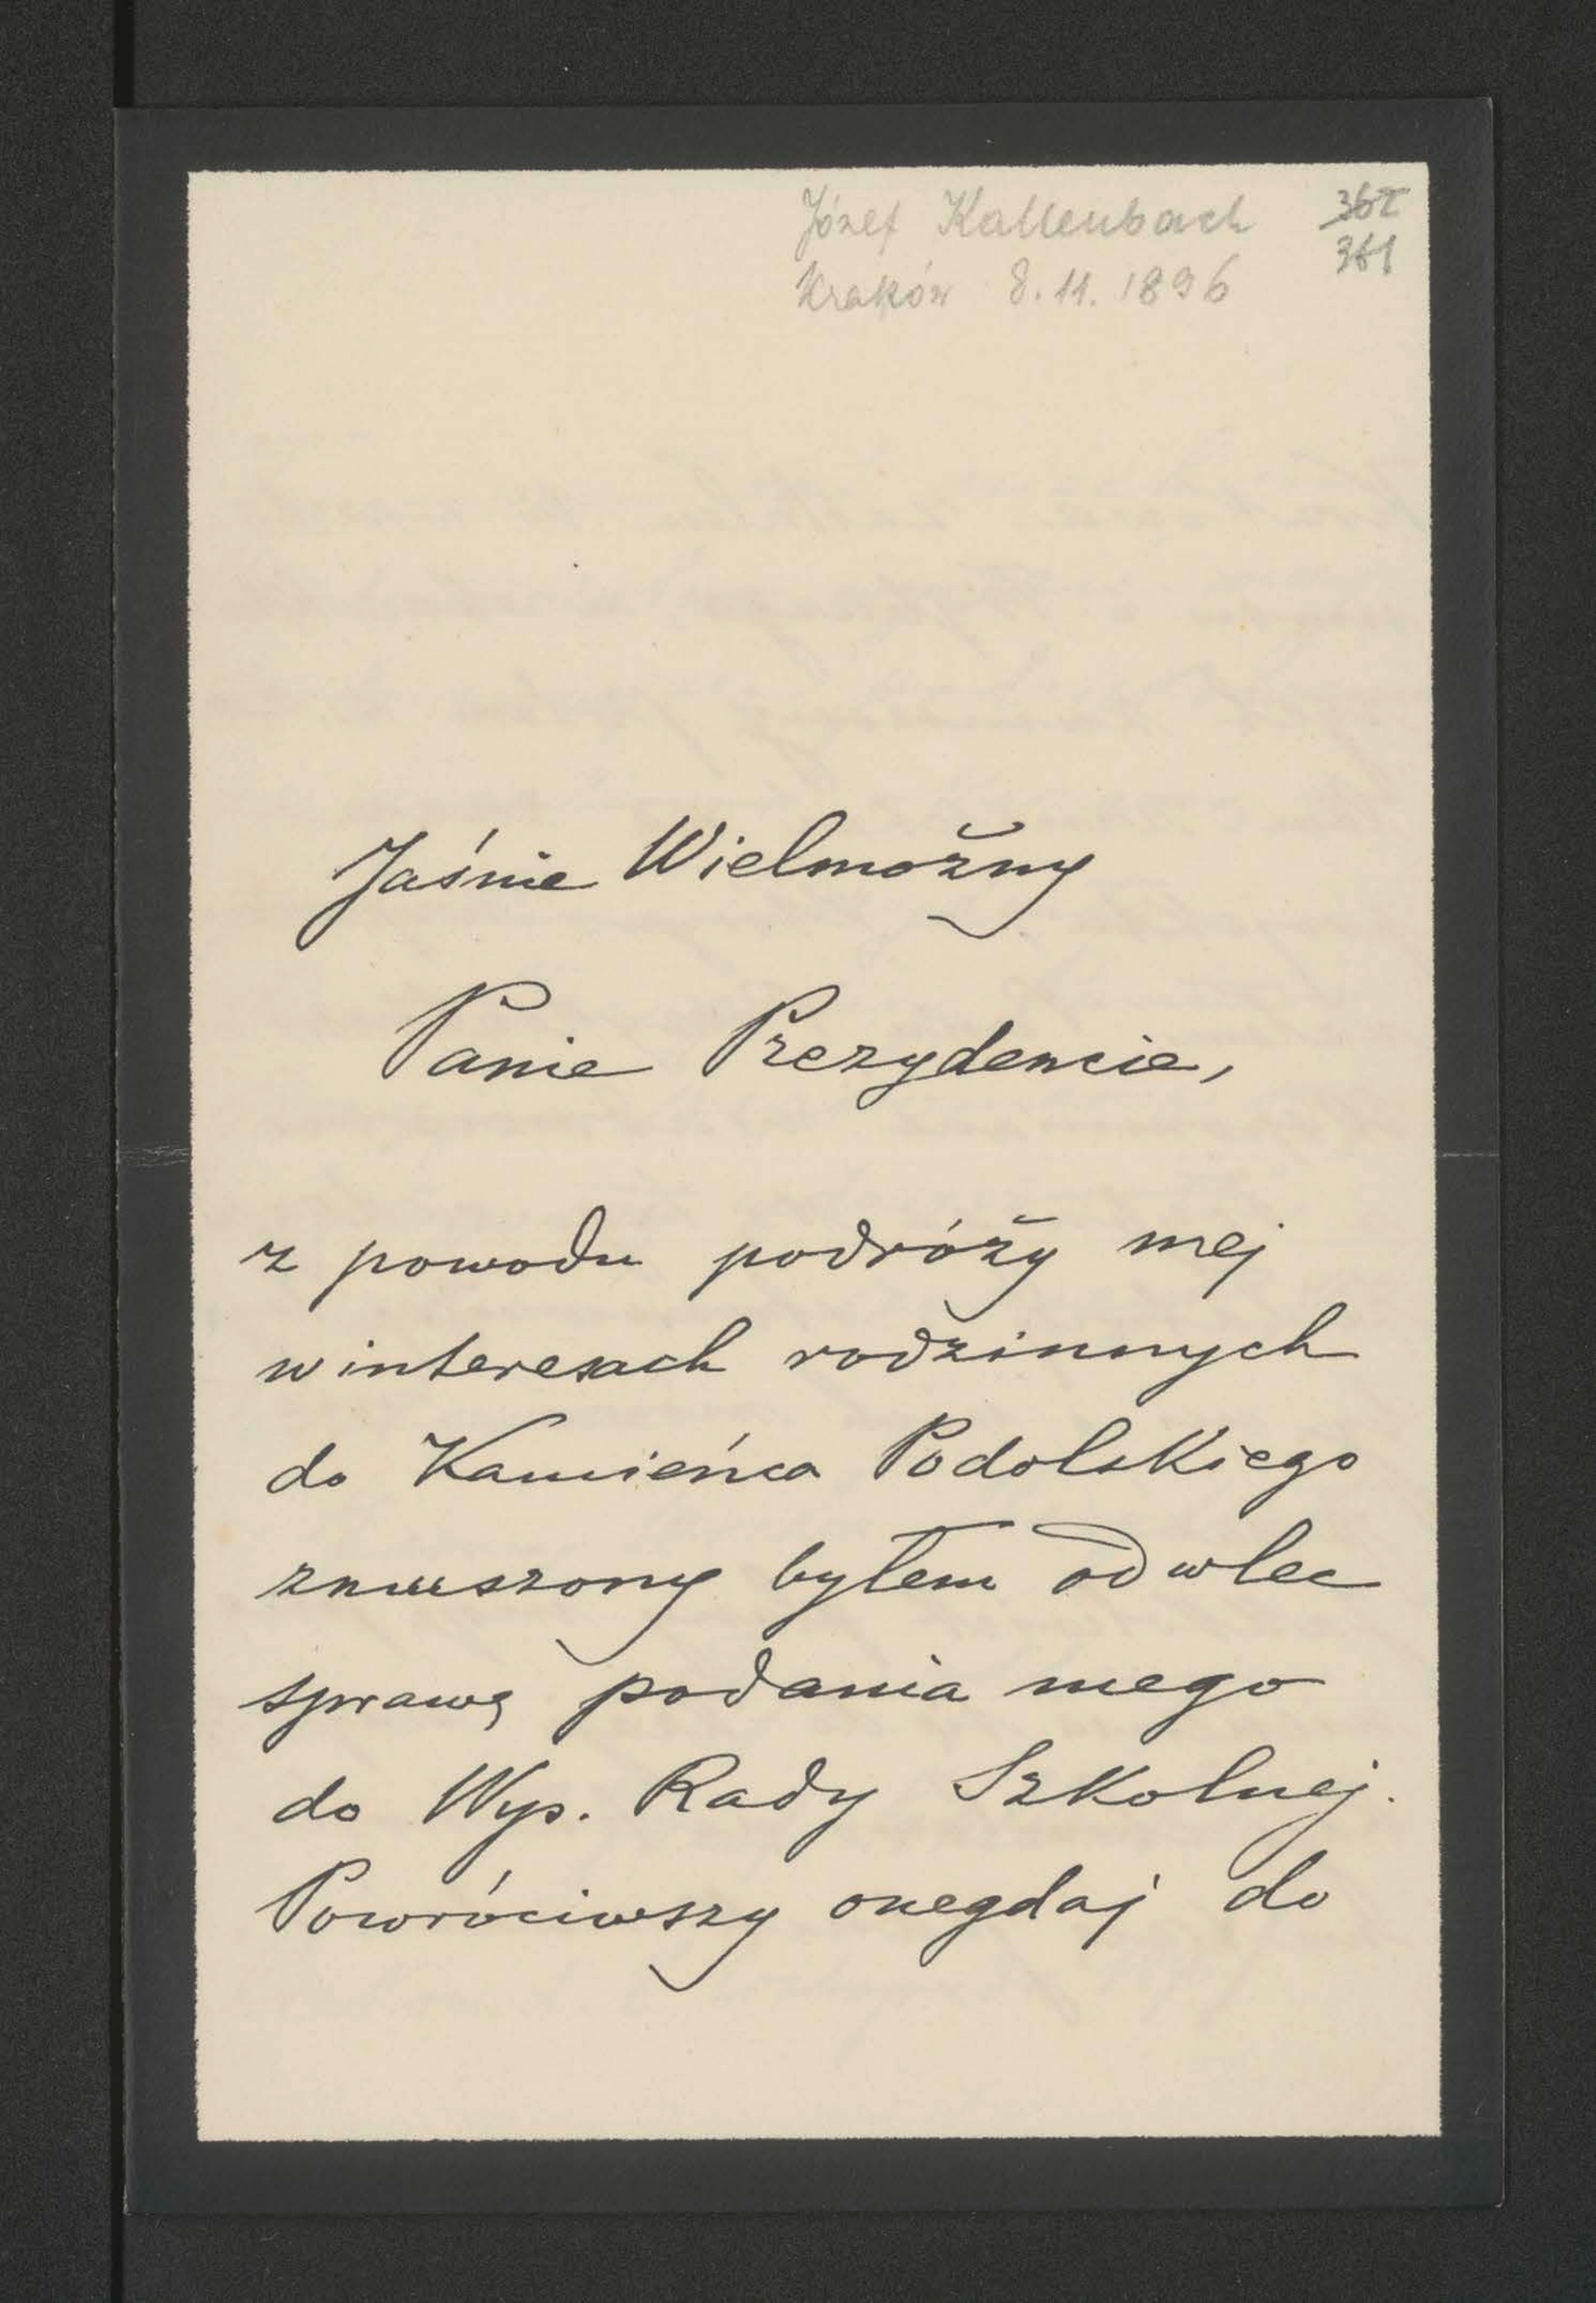 Józef Kallenbach
Kraków 8.11.1896
361
Jaśnie Wielmożny
Panie Prezydencie,
z powodu podróży mej
w interesach rodzinnych
do Kamieńca Podolskiego
zmuszony byłem odwlec
sprawę podania mego
do Wys. Rady Szkolnej.
Powróciwszy onegdaj do